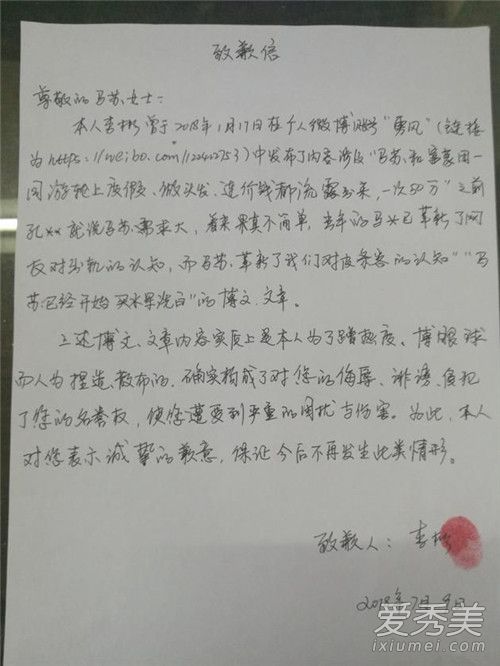 致歉信
尊敬的马苏女士：
本人李彬曾于2018年1月17日在个人微博账号“勇风”（链接
为https://weibo.com/122412753）中发布了内容涉及“马苏和
同游轮上度假、做头发、连价钱都流露出来，一次50万”“之前
孔××就说马苏需求大，看来果真不简单，当年的马×已革新了网
友对出轨的认知，而马苏革新了我们对度条客的认知”“马
苏已经开始买水果洗白”的博文、文章。
上述博文、文章内容实质上是本人为了蹭热度、博眼球
而人为捏造、散布的，确实构成了对您的侮辱、诽谤、侵犯
了您的名誉权，使您遭受到严重的困扰与伤害。为此，本人
对您表示诚挚的歉意，保证今后不再发生此类情形。
致歉人：李彬
2018年7月9日
爱秀美
ixiumei.com